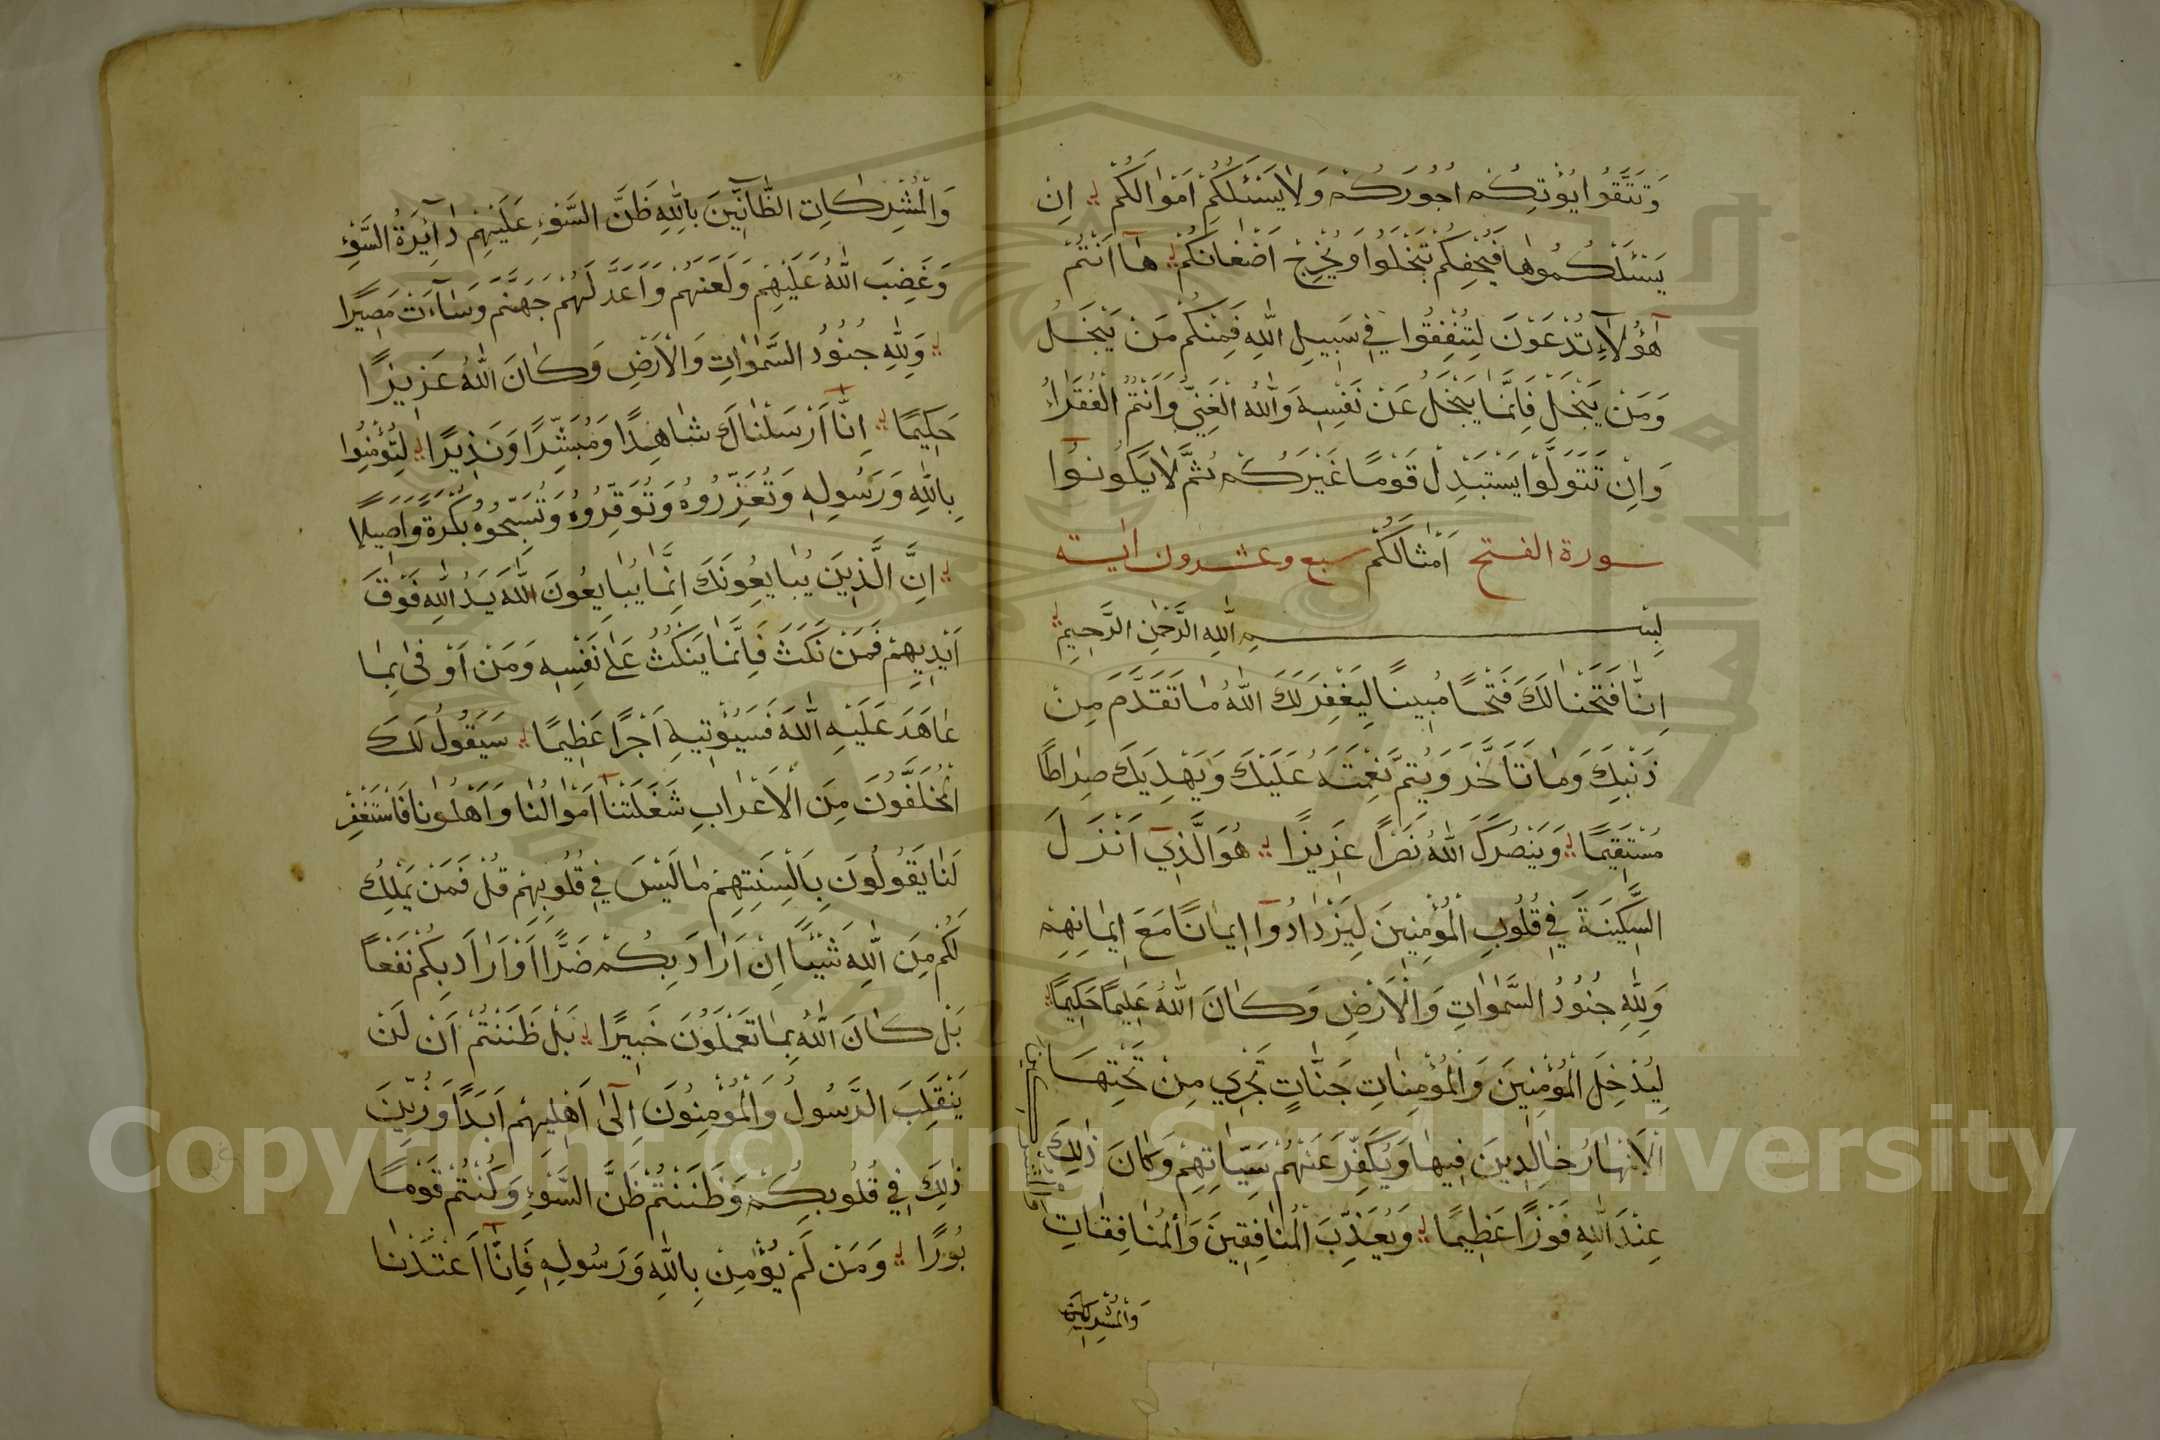 وَتَتَّقُوا يُؤْتِكُمْ اُجُورَكُمْ وَلَا يَسْئَلْكُمْ اَمْوَالَكُمْ اِنْ
يَسْئَلْكُمُوهَا فَيُحْفِكُمْ تَبْخَلُوا وَيُخْرِجْ اَضْغَانَكُمْ هَا اَنْتُمْ
هٰؤُلَاءِ تُدْعَوْنَ لِتُنْفِقُوا فِي سَبِيلِ اللّٰهِ فَمِنْكُمْ مَنْ يَبْخَلُ
وَمَنْ يَبْخَلْ فَاِنَّمَا يَبْخَلُ عَنْ نَفْسِهِ وَاللّٰهُ الْغَنِيُّ وَاَنْتُمُ الْفُقَرَاءُ
وَاِنْ تَتَوَلَّوْا يَسْتَبْدِلْ قَوْمًا غَيْرَكُمْ ثُمَّ لَا يَكُونُوا
سورة الفتح اَمْثَالَكُمْ سبع وعشرون اية
بِسْمِ اللّٰهِ الرَّحْمٰنِ الرَّحِيمِ
اِنَّا فَتَحْنَا لَكَ فَتْحًا مُبِينًا لِيَغْفِرَ لَكَ اللّٰهُ مَا تَقَدَّمَ مِنْ
ذَنْبِكَ وَمَا تَاَخَّرَ وَيُتِمَّ نِعْمَتَهُ عَلَيْكَ وَيَهْدِيَكَ صِرَاطًا
مُسْتَقِيمًا وَيَنْصُرَكَ اللّٰهُ نَصْرًا عَزِيزًا هُوَ الَّذِي اَنْزَلَ
السَّكِينَةَ فِي قُلُوبِ الْمُؤْمِنِينَ لِيَزْدَادُوا اِيمَانًا مَعَ اِيمَانِهِمْ
وَلِلّٰهِ جُنُودُ السَّمٰوَاتِ وَالْاَرْضِ وَكَانَ اللّٰهُ عَلِيمًا حَكِيمًا
لِيُدْخِلَ الْمُؤْمِنِينَ وَالْمُؤْمِنَاتِ جَنَّاتٍ تَجْرِي مِنْ تَحْتِهَا
الْاَنْهَارُ خَالِدِينَ فِيهَا وَيُكَفِّرَ عَنْهُمْ سَيِّاٰتِهِمْ وَكَانَ ذٰلِكَ
عِنْدَ اللّٰهِ فَوْزًا عَظِيمًا وَيُعَذِّبَ الْمُنَافِقِينَ وَالْمُنَافِقَاتِ
وَالْمُشْرِكِينَ
وَالْمُشْرِكِينَ
وَالْمُشْرِكَاتِ الظَّانِّينَ بِاللّٰهِ ظَنَّ السَّوْءِ عَلَيْهِمْ دَائِرَةُ السَّوْءِ
وَغَضِبَ اللّٰهُ عَلَيْهِمْ وَلَعَنَهُمْ وَاَعَدَّ لَهُمْ جَهَنَّمَ وَسَاءَتْ مَصِيرًا
وَلِلّٰهِ جُنُودُ السَّمٰوَاتِ وَالْاَرْضِ وَكَانَ اللّٰهُ عَزِيزًا
حَكِيمًا اِنَّا اَرْسَلْنَاكَ شَاهِدًا وَمُبَشِّرًا وَنَذِيرًا لِتُؤْمِنُوا
بِاللّٰهِ وَرَسُولِهِ وَتُعَزِّرُوهُ وَتُوَقِّرُوهُ وَتُسَبِّحُوهُ بُكْرَةً وَاَصِيلًا
اِنَّ الَّذِينَ يُبَايِعُونَكَ اِنَّمَا يُبَايِعُونَ اللّٰهَ يَدُ اللّٰهِ فَوْقَ
اَيْدِيهِمْ فَمَنْ نَكَثَ فَاِنَّمَا يَنْكُثُ عَلٰى نَفْسِهِ وَمَنْ اَوْفٰى بِمَا
عَاهَدَ عَلَيْهِ اللّٰهَ فَسَيُؤْتِيهِ اَجْرًا عَظِيمًا سَيَقُولُ لَكَ
الْمُخَلَّفُونَ مِنَ الْاَعْرَابِ شَغَلَتْنَا اَمْوَالُنَا وَاَهْلُونَا فَاسْتَغْفِرْ
لَنَا يَقُولُونَ بِاَلْسِنَتِهِمْ مَا لَيْسَ فِي قُلُوبِهِمْ قُلْ فَمَنْ يَمْلِكُ
لَكُمْ مِنَ اللّٰهِ شَيْئًا اِنْ اَرَادَ بِكُمْ ضَرًّا اَوْ اَرَادَ بِكُمْ نَفْعًا
بَلْ كَانَ اللّٰهُ بِمَا تَعْمَلُونَ خَبِيرًا بَلْ ظَنَنْتُمْ اَنْ لَنْ
يَنْقَلِبَ الرَّسُولُ وَالْمُؤْمِنُونَ اِلٰى اَهْلِيهِمْ اَبَدًا وَزُيِّنَ
ذٰلِكَ فِي قُلُوبِكُمْ وَظَنَنْتُمْ ظَنَّ السَّوْءِ وَكُنْتُمْ قَوْمًا
بُورًا وَمَنْ لَمْ يُؤْمِنْ بِاللّٰهِ وَرَسُولِهِ فَاِنَّا اَعْتَدْنَا
Copyright © King Saud University